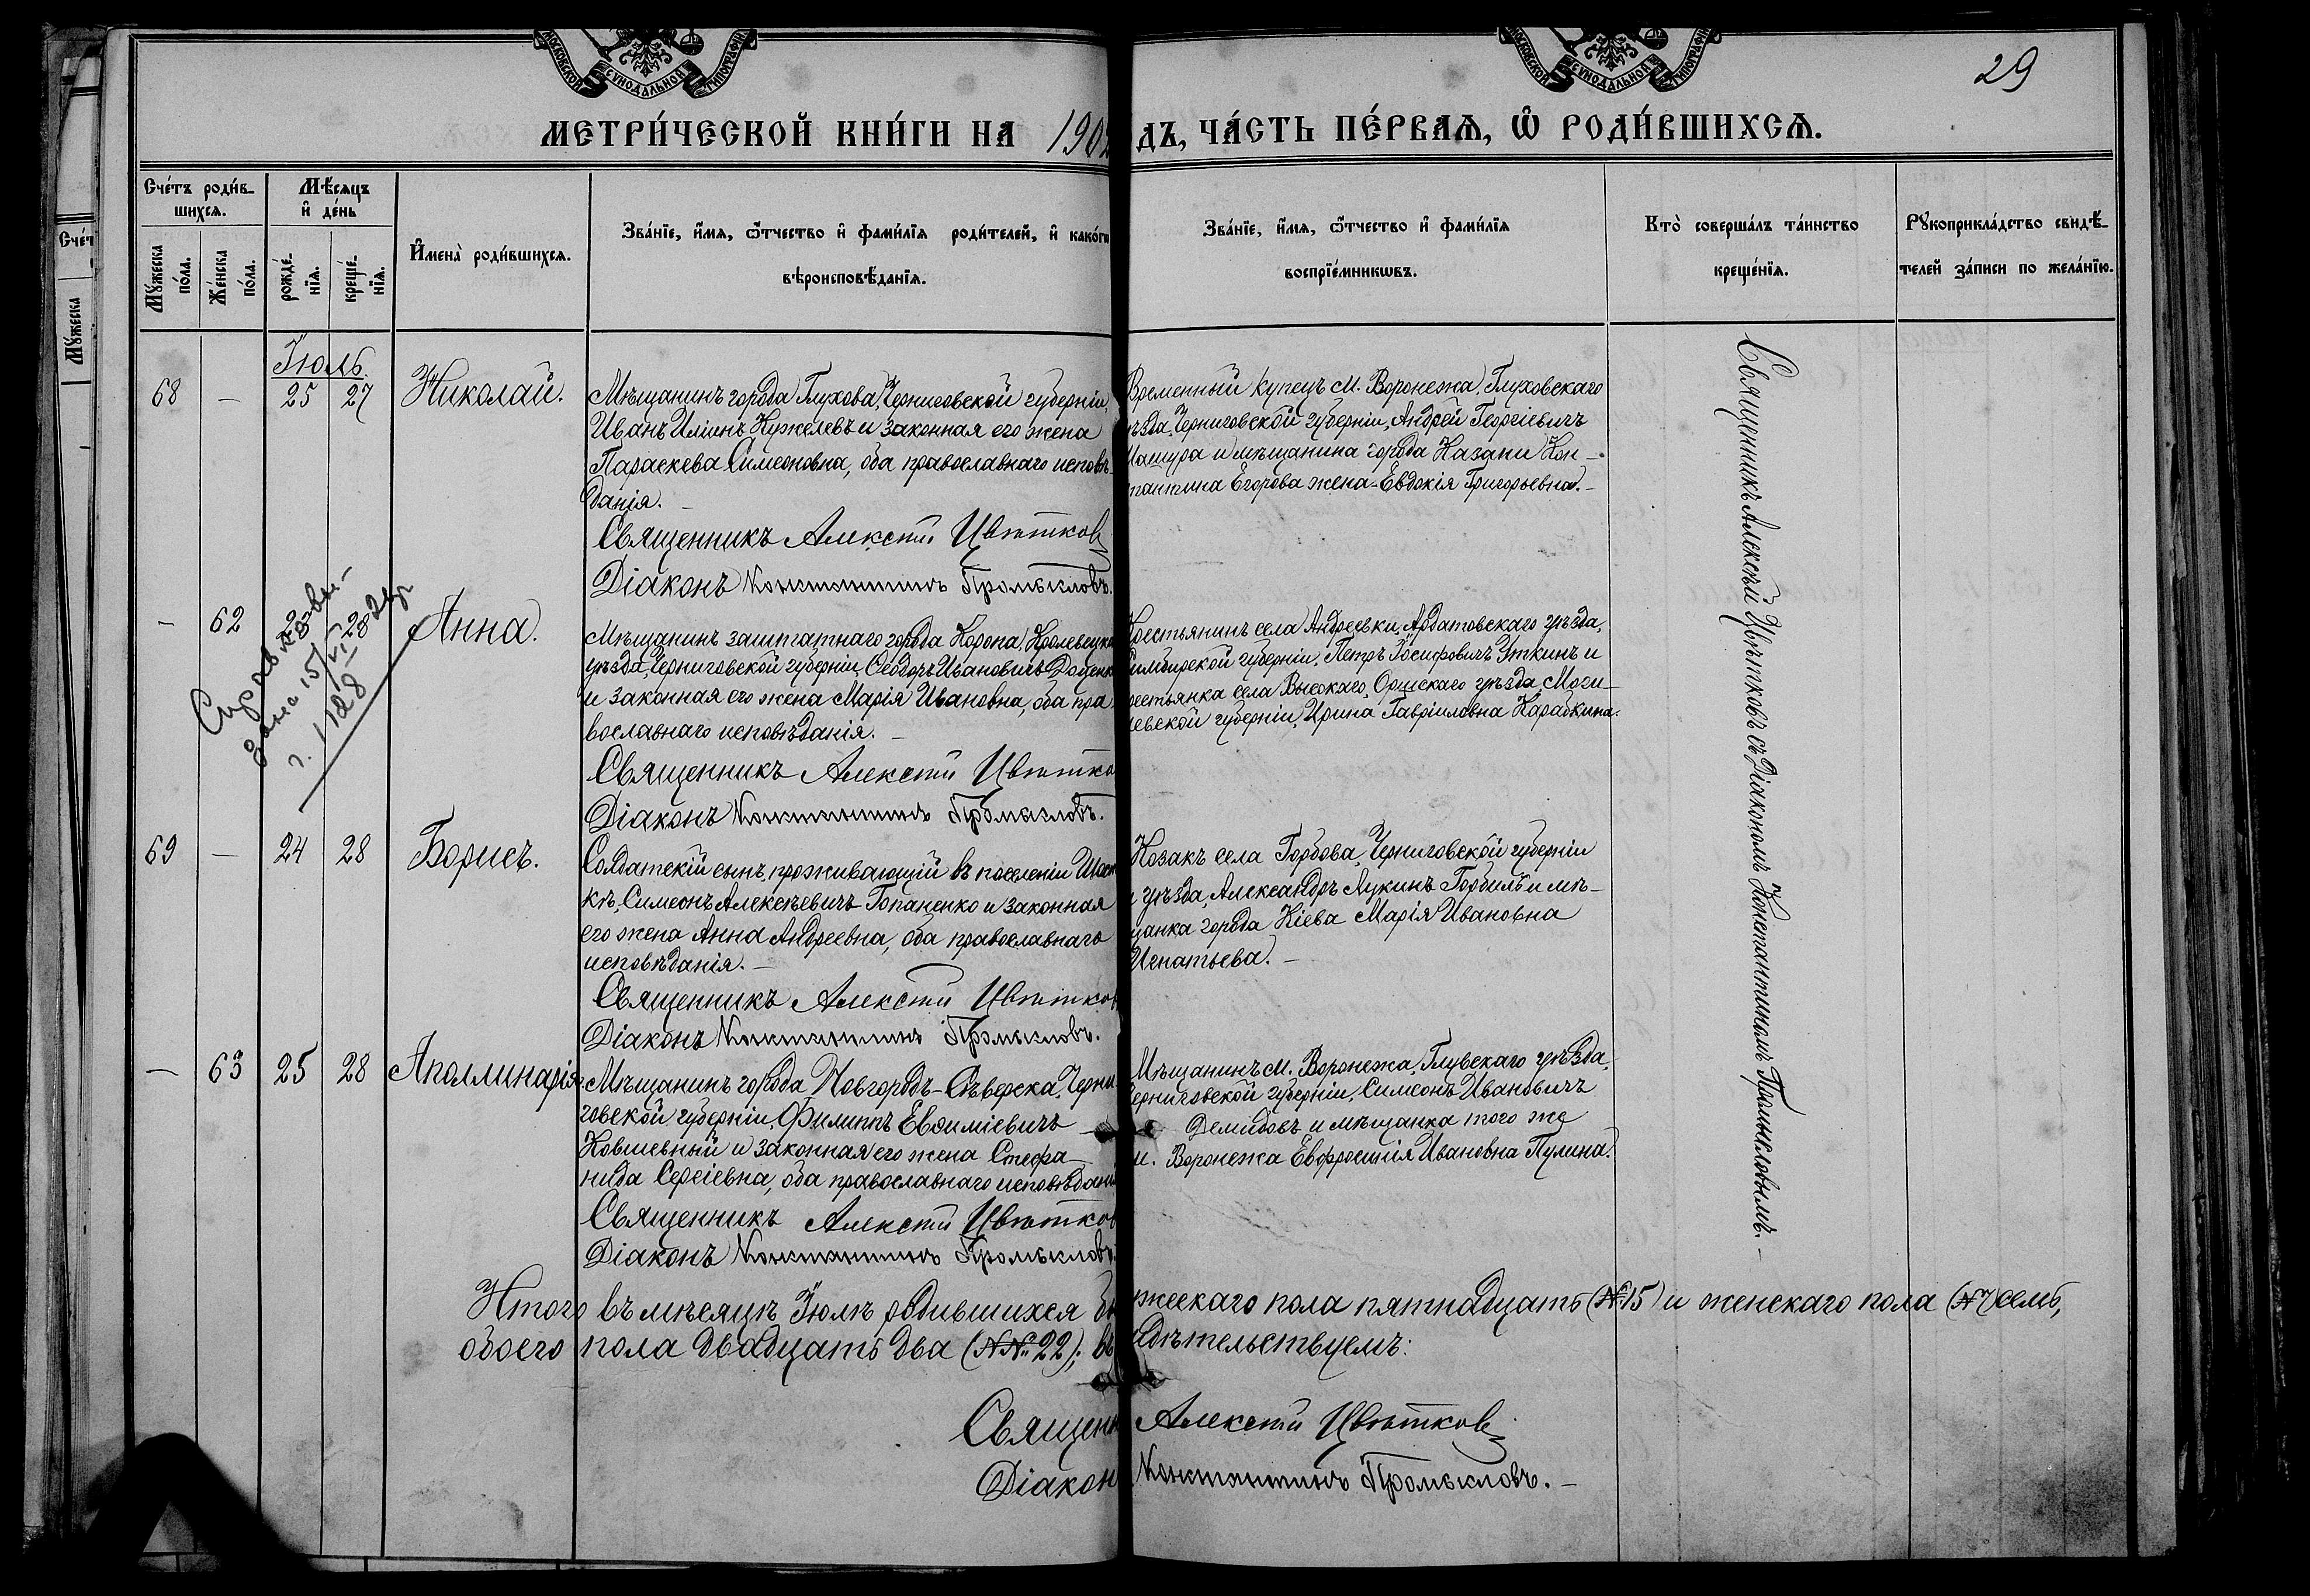 МОСКОВСКОЙ СУНОДАЛЬНОЙ ТИПОГРАФІИ
МОСКОВСКОЙ СУНОДАЛЬНОЙ ТИПОГРАФІИ
29
МЕТРИ́ЧЕСКОЙ КНИ́ГИ НА 190
ДЪ, ЧА́СТЬ ПЕ́РВАѦ, Ѽ РОДИ́ВШИХСѦ.
Сче́тъ роди́в-
шихсѧ.
Мѣ́сѧцъ
и҆ де́нь
Мꙋ́жеска
по́ла.
Же́нска
по́ла.
рожде́-
нїѧ.
креще́-
нїѧ.
И҆мена̀ роди́вшихсѧ.
Зва́нїе, и҆́мѧ, ѻ҆́тчество и҆ фами́лїѧ роди́телей, и҆ како́гѡ
вѣроисповѣ́данїѧ.
Зва́нїе, и҆́мѧ, ѻ҆́тчество и҆ фами́лїѧ
воспрїе́мникѡвъ.
Кто̀ соверша́лъ та́инство
креще́нїѧ.
Рꙋкоприкла́дство свидѣ́-
телей за́писи по жела́нїю.
Сче́т
Мꙋ́жеска
Іюль.
68 — 25 27 Николай.
Мѣщанинъ города Глухова, Черниговской губерніи,
Иванъ Иліинъ Кужелевъ и законная его жена
Параскева Симеоновна, оба православнаго исповѣ-
данія. —
Священникъ Алексѣй Цвѣтков
Діаконъ Константинъ Промысловъ.
Временный купецъ м. Воронежа, Глуховскаго
ѣзда, Черниговской губерніи, Андрей Георгіевичъ
ашура и мѣщанина города Казани Кон-
тантина Егорова жена Евдокія Григорьевна. —
— 62 28 28 Анна.
дана 15/VI
г. 1128
Мѣщанинъ заштатнаго города Коропа, Кролевецка
уѣзда, Черниговской губерніи, Ѳеодоръ Ивановичъ Доценк
и законная его жена Марія Ивановна, оба пра
вославнаго исповѣданія. —
Священникъ Алексѣй Цвѣтко
Діаконъ Константинъ Промысловъ.
Крестьянинъ села Андреевки, Ардатовскаго уѣзда,
Симбирской губерніи, Петръ Іосифовичъ Уткинъ и
рестьянка села Высокаго, Оршскаго уѣзда, Моги-
левской губерніи, Ирина Гавріиловна Карабкина.
69 — 24 28 Борисъ.
Солдатскій сынъ, проживающій въ поселеніи Шост
кѣ, Симеонъ Алексѣевичъ Гопаненко и законная
его жена Анна Андреевна, оба православнаго
исповѣданія. —
Священникъ Алексѣй Цвѣтков
Діаконъ Константинъ Промысловъ.
Козакъ села Горбова, Черниговской губерніи
и уѣзда, Александръ Лукинъ Горбиль и мѣ-
щанка города Кіева Марія Ивановна
Игнатьева. —
— 63 25 28 Аполлинарія
Мѣщанинъ города Новгородъ-Сѣверска, Черни
говской губерніи, Филиппъ Евѳиміевичъ
Ковшевный и законная его жена Стефа-
нида Сергіевна, оба православнаго исповѣдані
Священникъ Алексѣй Цвѣтков
Діаконъ Константинъ Промысловъ.
Мѣщанинъ м. Воронежа, Глувскаго уѣзда,
Черниговской губерніи, Симеонъ Ивановичъ
Демидовъ и мѣщанка того же
м. Воронежа Евфросинія Ивановна Пулина.
Священникъ Алексѣй Цвѣтковъ съ Діакономъ Константиномъ Промысловымъ. —
Итого въ мѣсяцѣ Іюлѣ родившихся
жескаго пола пятнадцать (№ 15) и женскаго пола (№ 7) семь,
обоего пола двадцать два (№№ 22);
идѣтельствуемъ:
Священн Алексѣй Цвѣтков
Діакон Константинъ Промысловъ. —